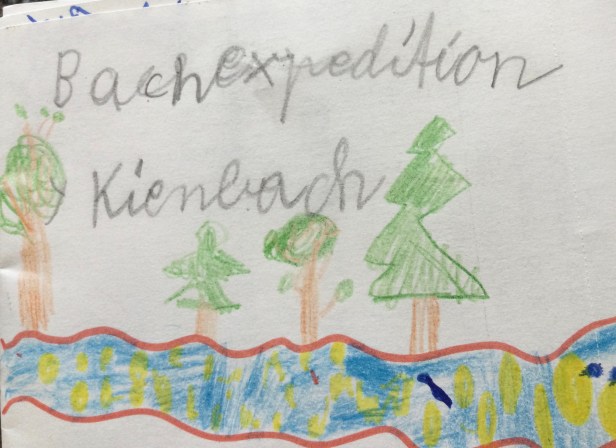 Bachexpedition
Kienbach